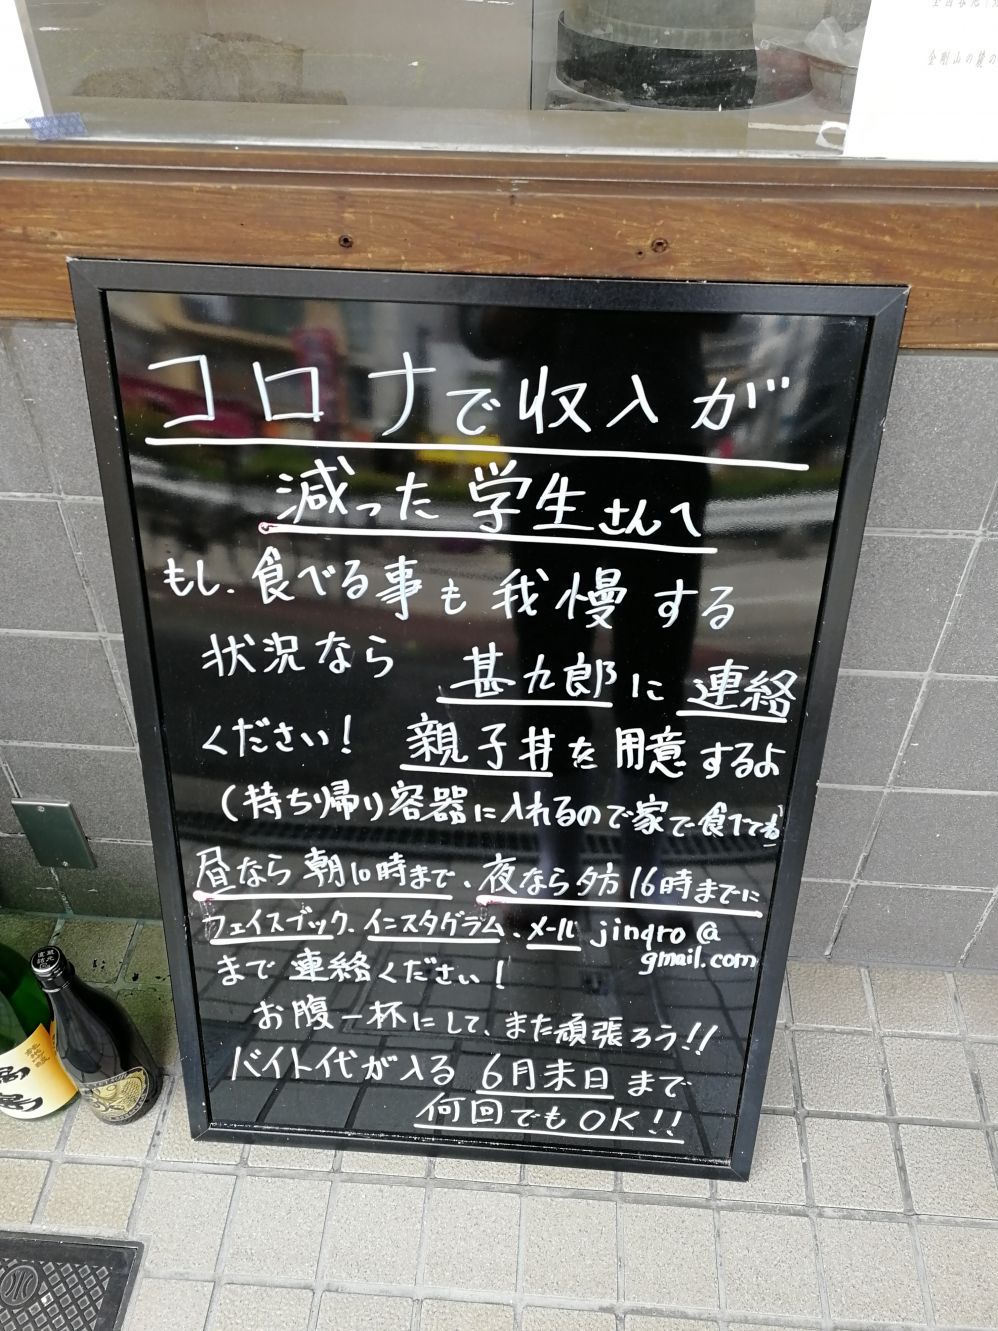 金剛山の麓の
コロナで収入が
減った学生さんへ
もし、食べる事も我慢する
状況なら 甚九郎に連絡
ください! 親子丼を用意するよ
(持ち帰り容器に入れるので家で食べてね)
昼なら朝10時まで、夜なら夕方16時までに
フェイスブック、インスタグラム、メール jinqro@
gmail.com
まで連絡ください!
お腹一杯にして、また頑張ろう!!
バイト代が入る 6月末日まで
何回でもOK!!